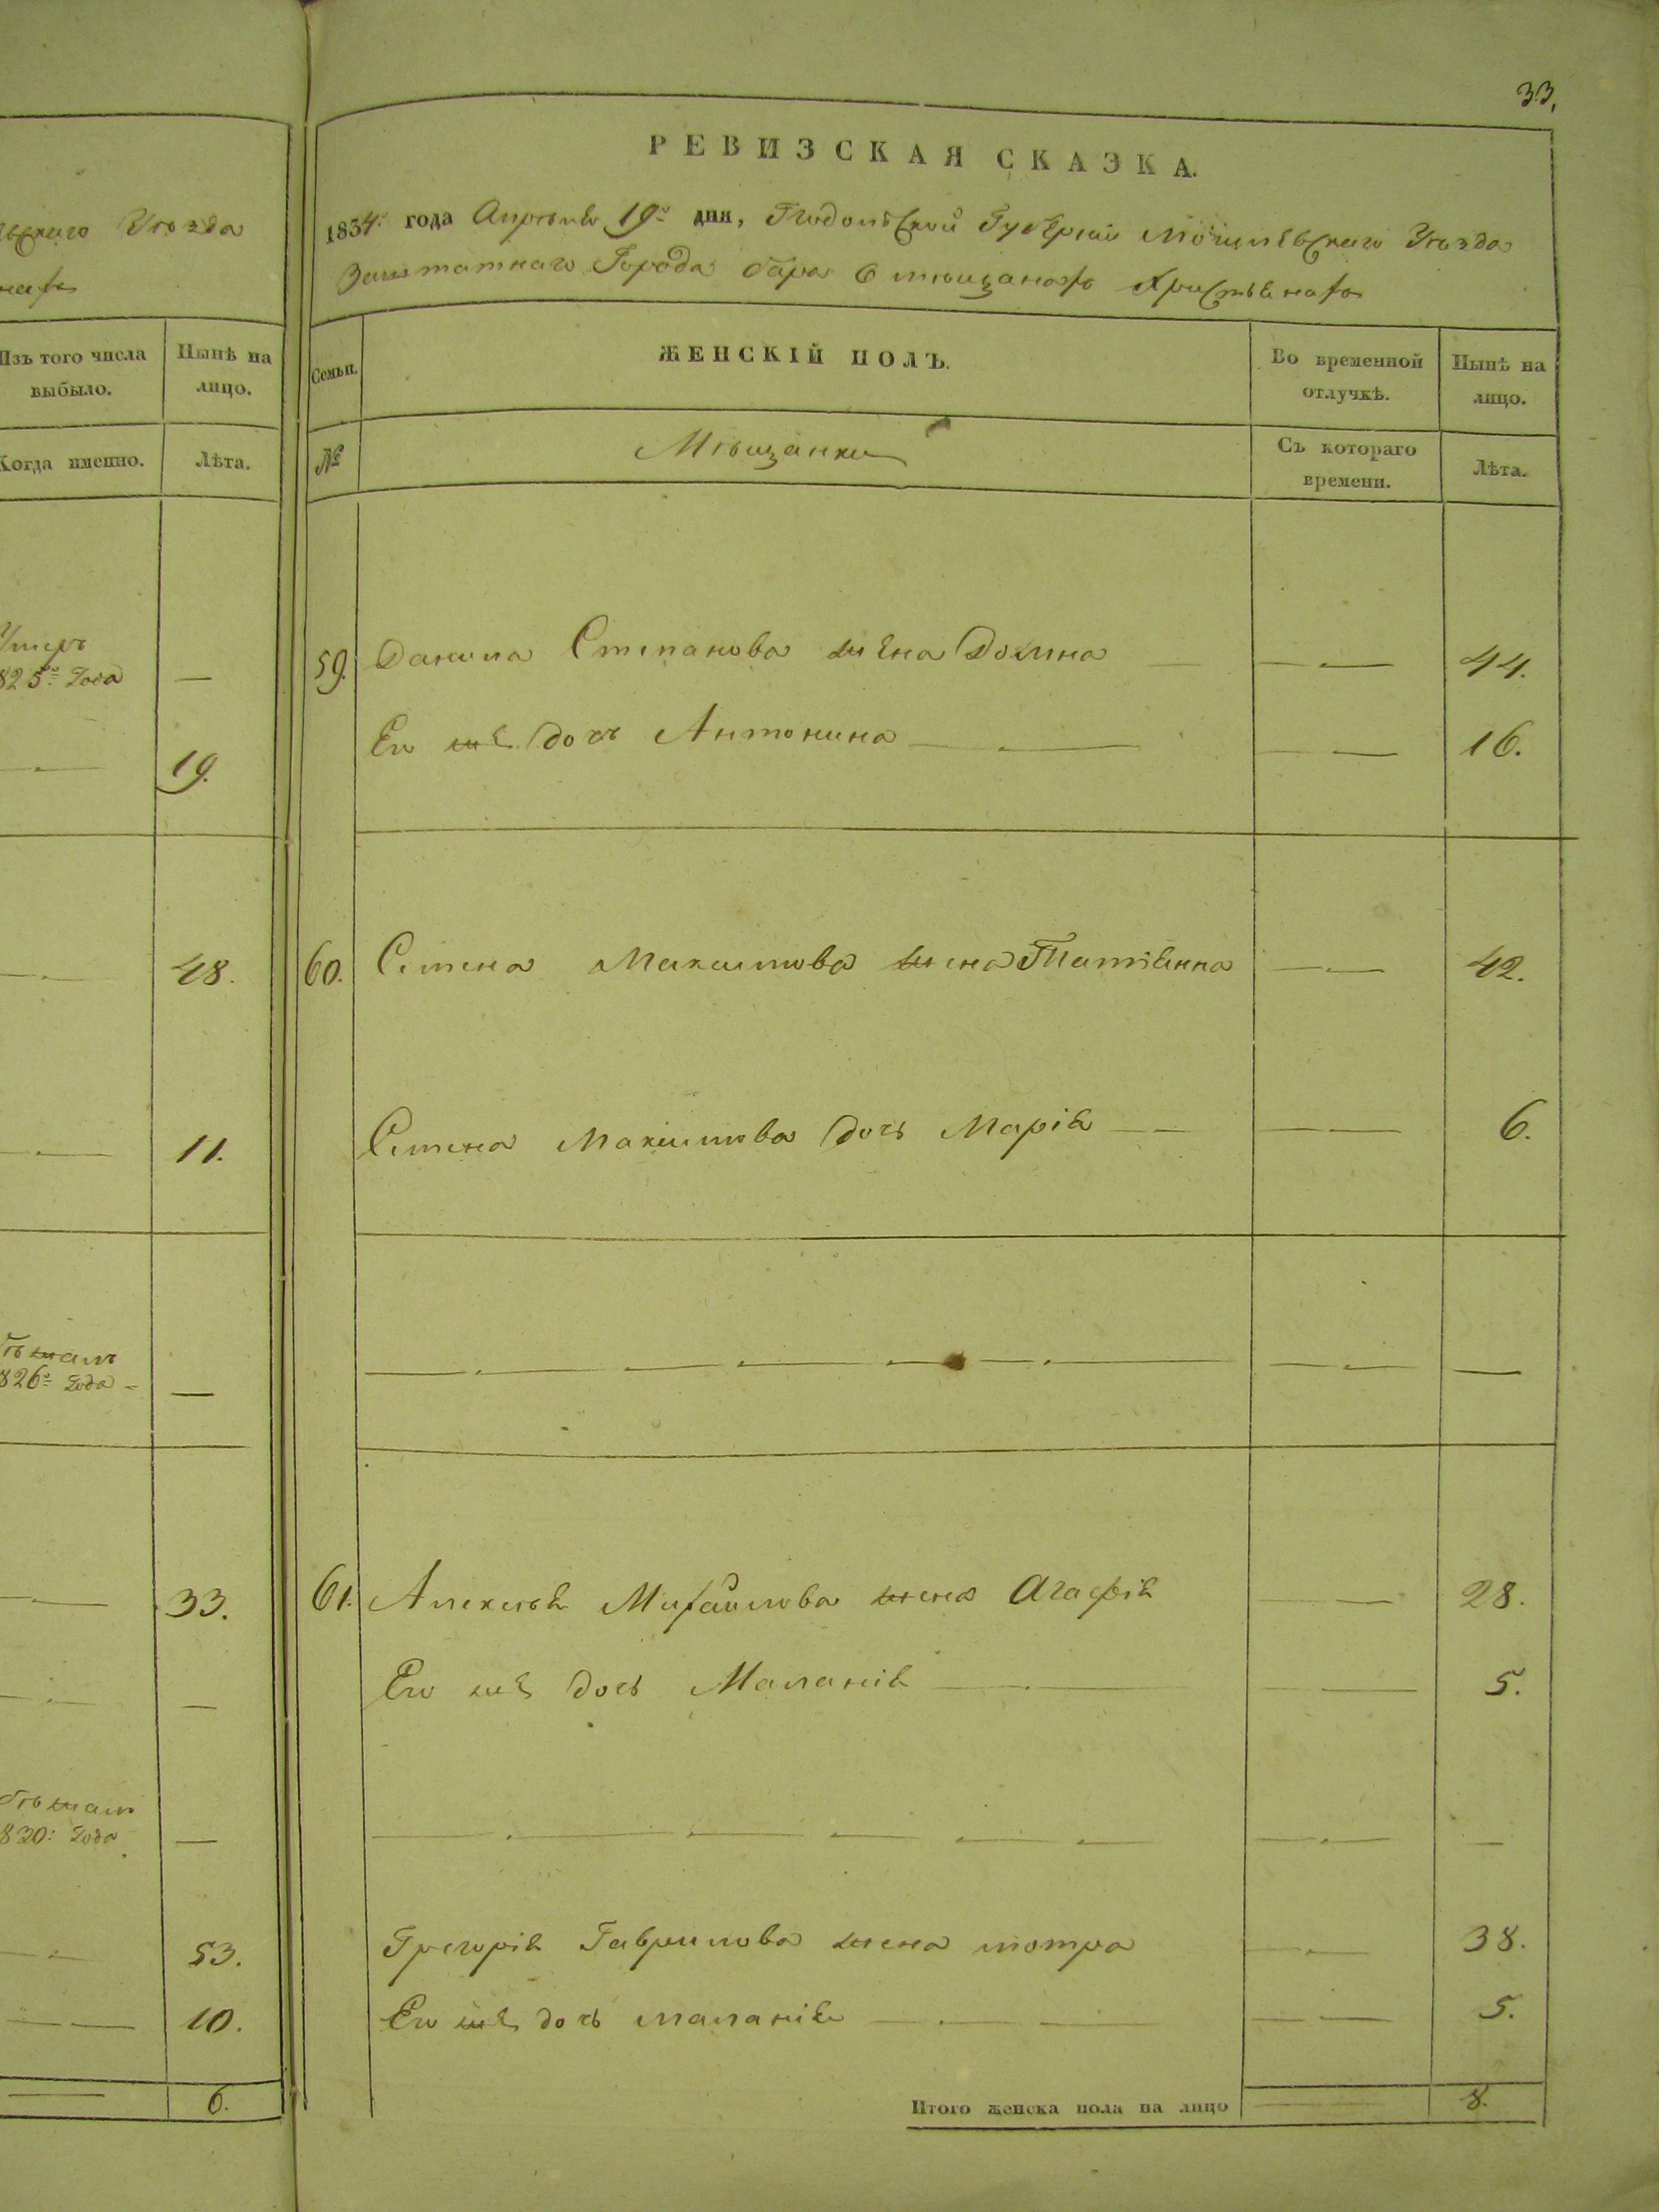 33.
ьскаго Уѣзда
нахъ
Изъ того числа выбыло.
Нынѣ на лицо.
Когда именно.
Лѣта.
Умеръ
825го Года —
19.
48.
11.
Бѣжалъ
826го Года — —
33.
—
Бѣжалъ
830: Года —
53.
10.
6.
РЕВИЗСКАЯ СКАЗКА.
1834: года Апрѣля 19го дня, Подольской Губерніи Могилевскаго Уѣзда
Заштатнаго Города Бара О мѣщанахъ Христіянахъ
Семьи.
ЖЕНСКІЙ ПОЛЪ.
Во временной отлучкѣ.
Нынѣ на лицо.
№
Мѣщанки
Съ котораго времени.
Лѣта.
59. Данила Степанова жена Домна — — — 44.
Его же дочъ Антонина — — — — 16.
60. Семена Максимова жена Татіянна — — 42.
Семена Максимова дочь Марія — — — — 6.
61. Алексѣя Михайлова жена Агафія — — 28.
Его же дочь Маланія — — — — 5.
Грегорія Гаврилова жена мотра — — 38.
Его же дочь маланія — — — — 5.
Итого женска пола на лицо 8.